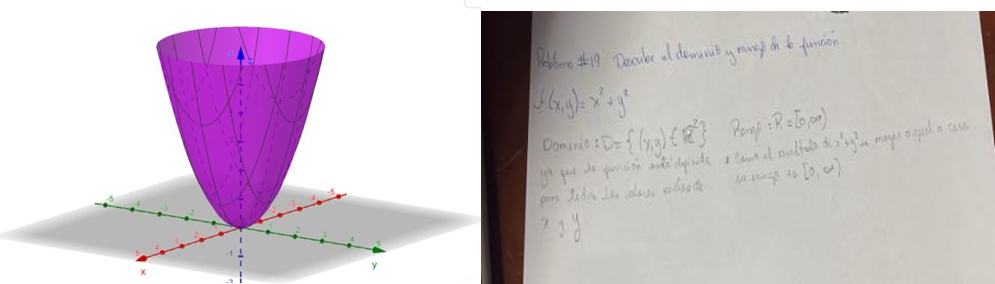 Problema #19 Describe el dominio y rango de la función
f(x,y)= x² + y²
Dominio : D= { (x,y) ∈ ℝ² }
ya que la función está definida
para todos los valores reales de
x y y
Rango : R = [0,∞)
* Como el resultado de x²+y² es mayor o igual a cero
su rango es [0, ∞)
x
y
-5
-5
5
5
4
4
-1
-2